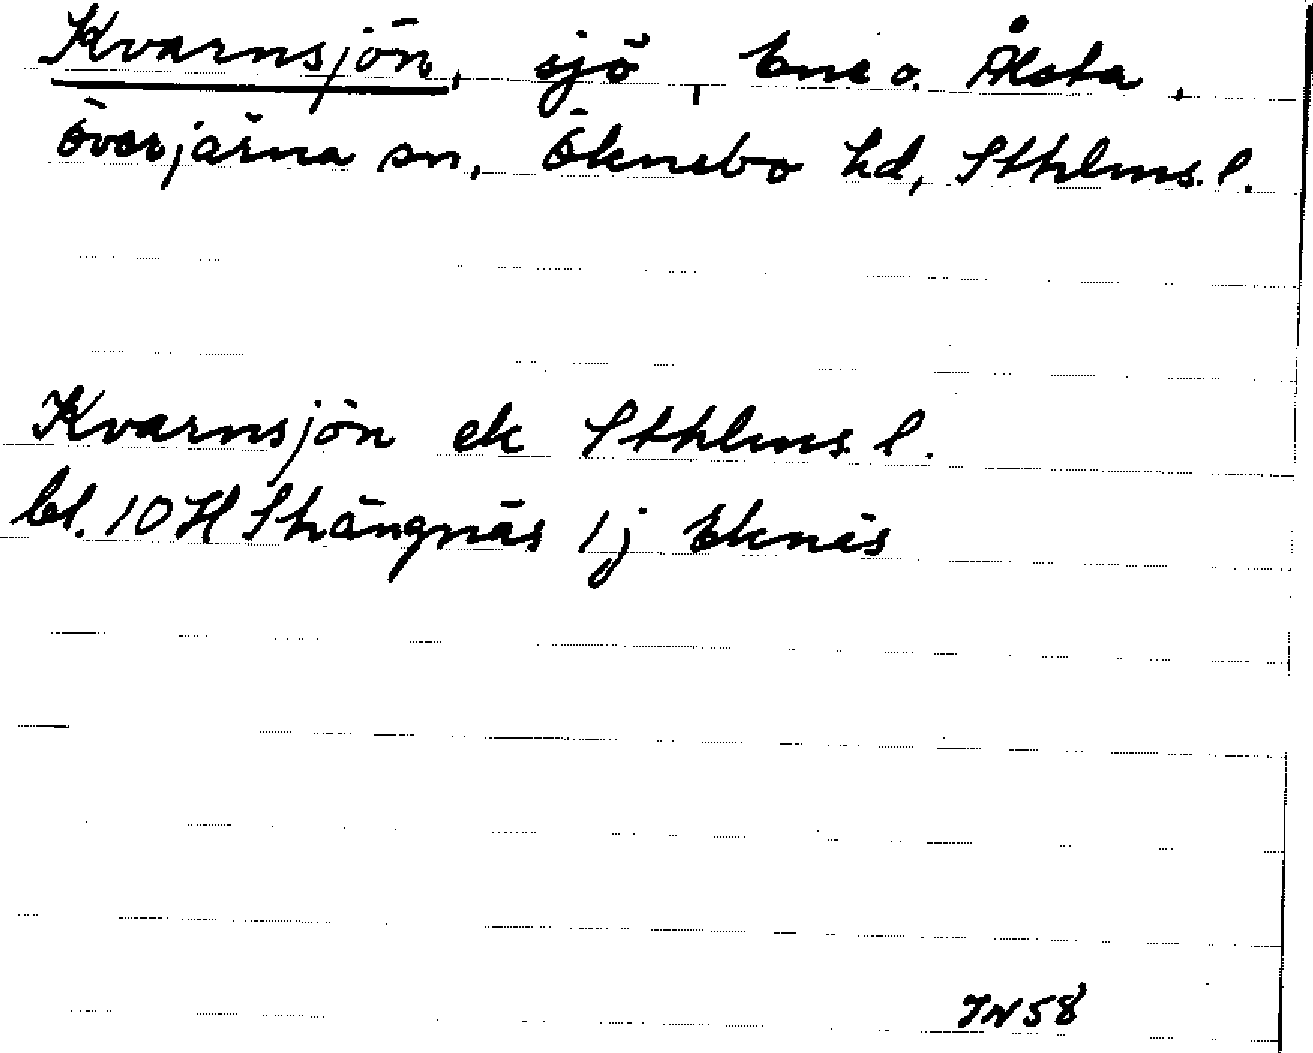 Kvarnsjön, sjö, Ene o. Ålsta,
Överjärna sn, Öknebo hd, Sthlms. l.
Kvarnsjön ek Sthlms l.
bl. 10 H Strängnäs 1j Eknäs
IN 58